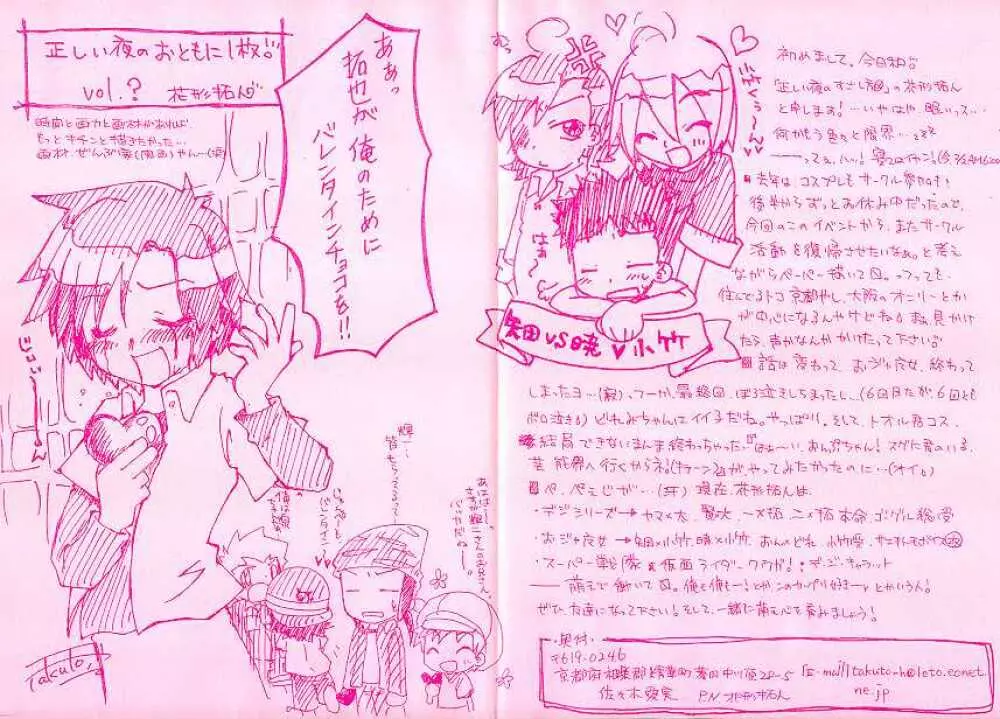 正しい夜のおともに1枚。
vol.? 花形拓んが
時間と画力と画材があれば、
もっとキチンと描きたかった…
あぁっ
拓也が俺のために
バレンタインチョコを!!
輝一
皆もらってるって
じゅんぺーも、
バレンタイン?
Takuto,
むっ
にさくぅ〜ん
はぁ〜
矢田VS暁♥小竹
初めまして、今日和。
「正しい夜のすごし方」の花形拓ん
と申します!…いやはや、眠いっス…
何かもう色々と限界…zzz
■去年は、コスプレもサークル参加も
後半からずっとお休み中だったので、
今回のこのイベントから、またサークル
活動を復帰させたいなぁ。と考え
ながらペーパー描いて〼。ってっても、
住んでるトコ京都やし、大阪のオンリーとか
が中心になるんやけどね。お見かけ
たら、声かなんかかけたって下さい。
■話は変わって、おジャ魔女、終わって
しまったヨ…(寂)っつーか、最終回、ぼろ泣きしちまったし…(6回見たが、6回とも
ボロ泣き)どれみちゃんはイイ子だね。やっぱり。そして、トオル君コス、
結局できないまんま終わっちゃったっ。「はぁ〜い、おんぷちゃん!スグに君のいる
芸能界へ行くからネ!(キラーン)」がやってみたかったのに…(オイ)
■ぺ、ぺぇじが…(汗)現在、花形拓んは、
・デジシリーズ→ヤマ×太、賢大、一×拓、二×拓本命、ゴーグル総受
・おジャ魔女→矢田×小竹、暁×小竹、おん×どれ、小竹受、
・スーパー戦隊&仮面ライダークウガ!・デジ・キャラット
──萌えて働いて〼。俺も俺もー!とか、このカップリ好きーァとかいう人!
ぜひ、友達になって下さい!そして、一緒に萌え心を呑みましょう!
・奥付・
〒619-0246
E-mail takuto-h@leto.eonet.
ne.jp
P.N 花形拓ん